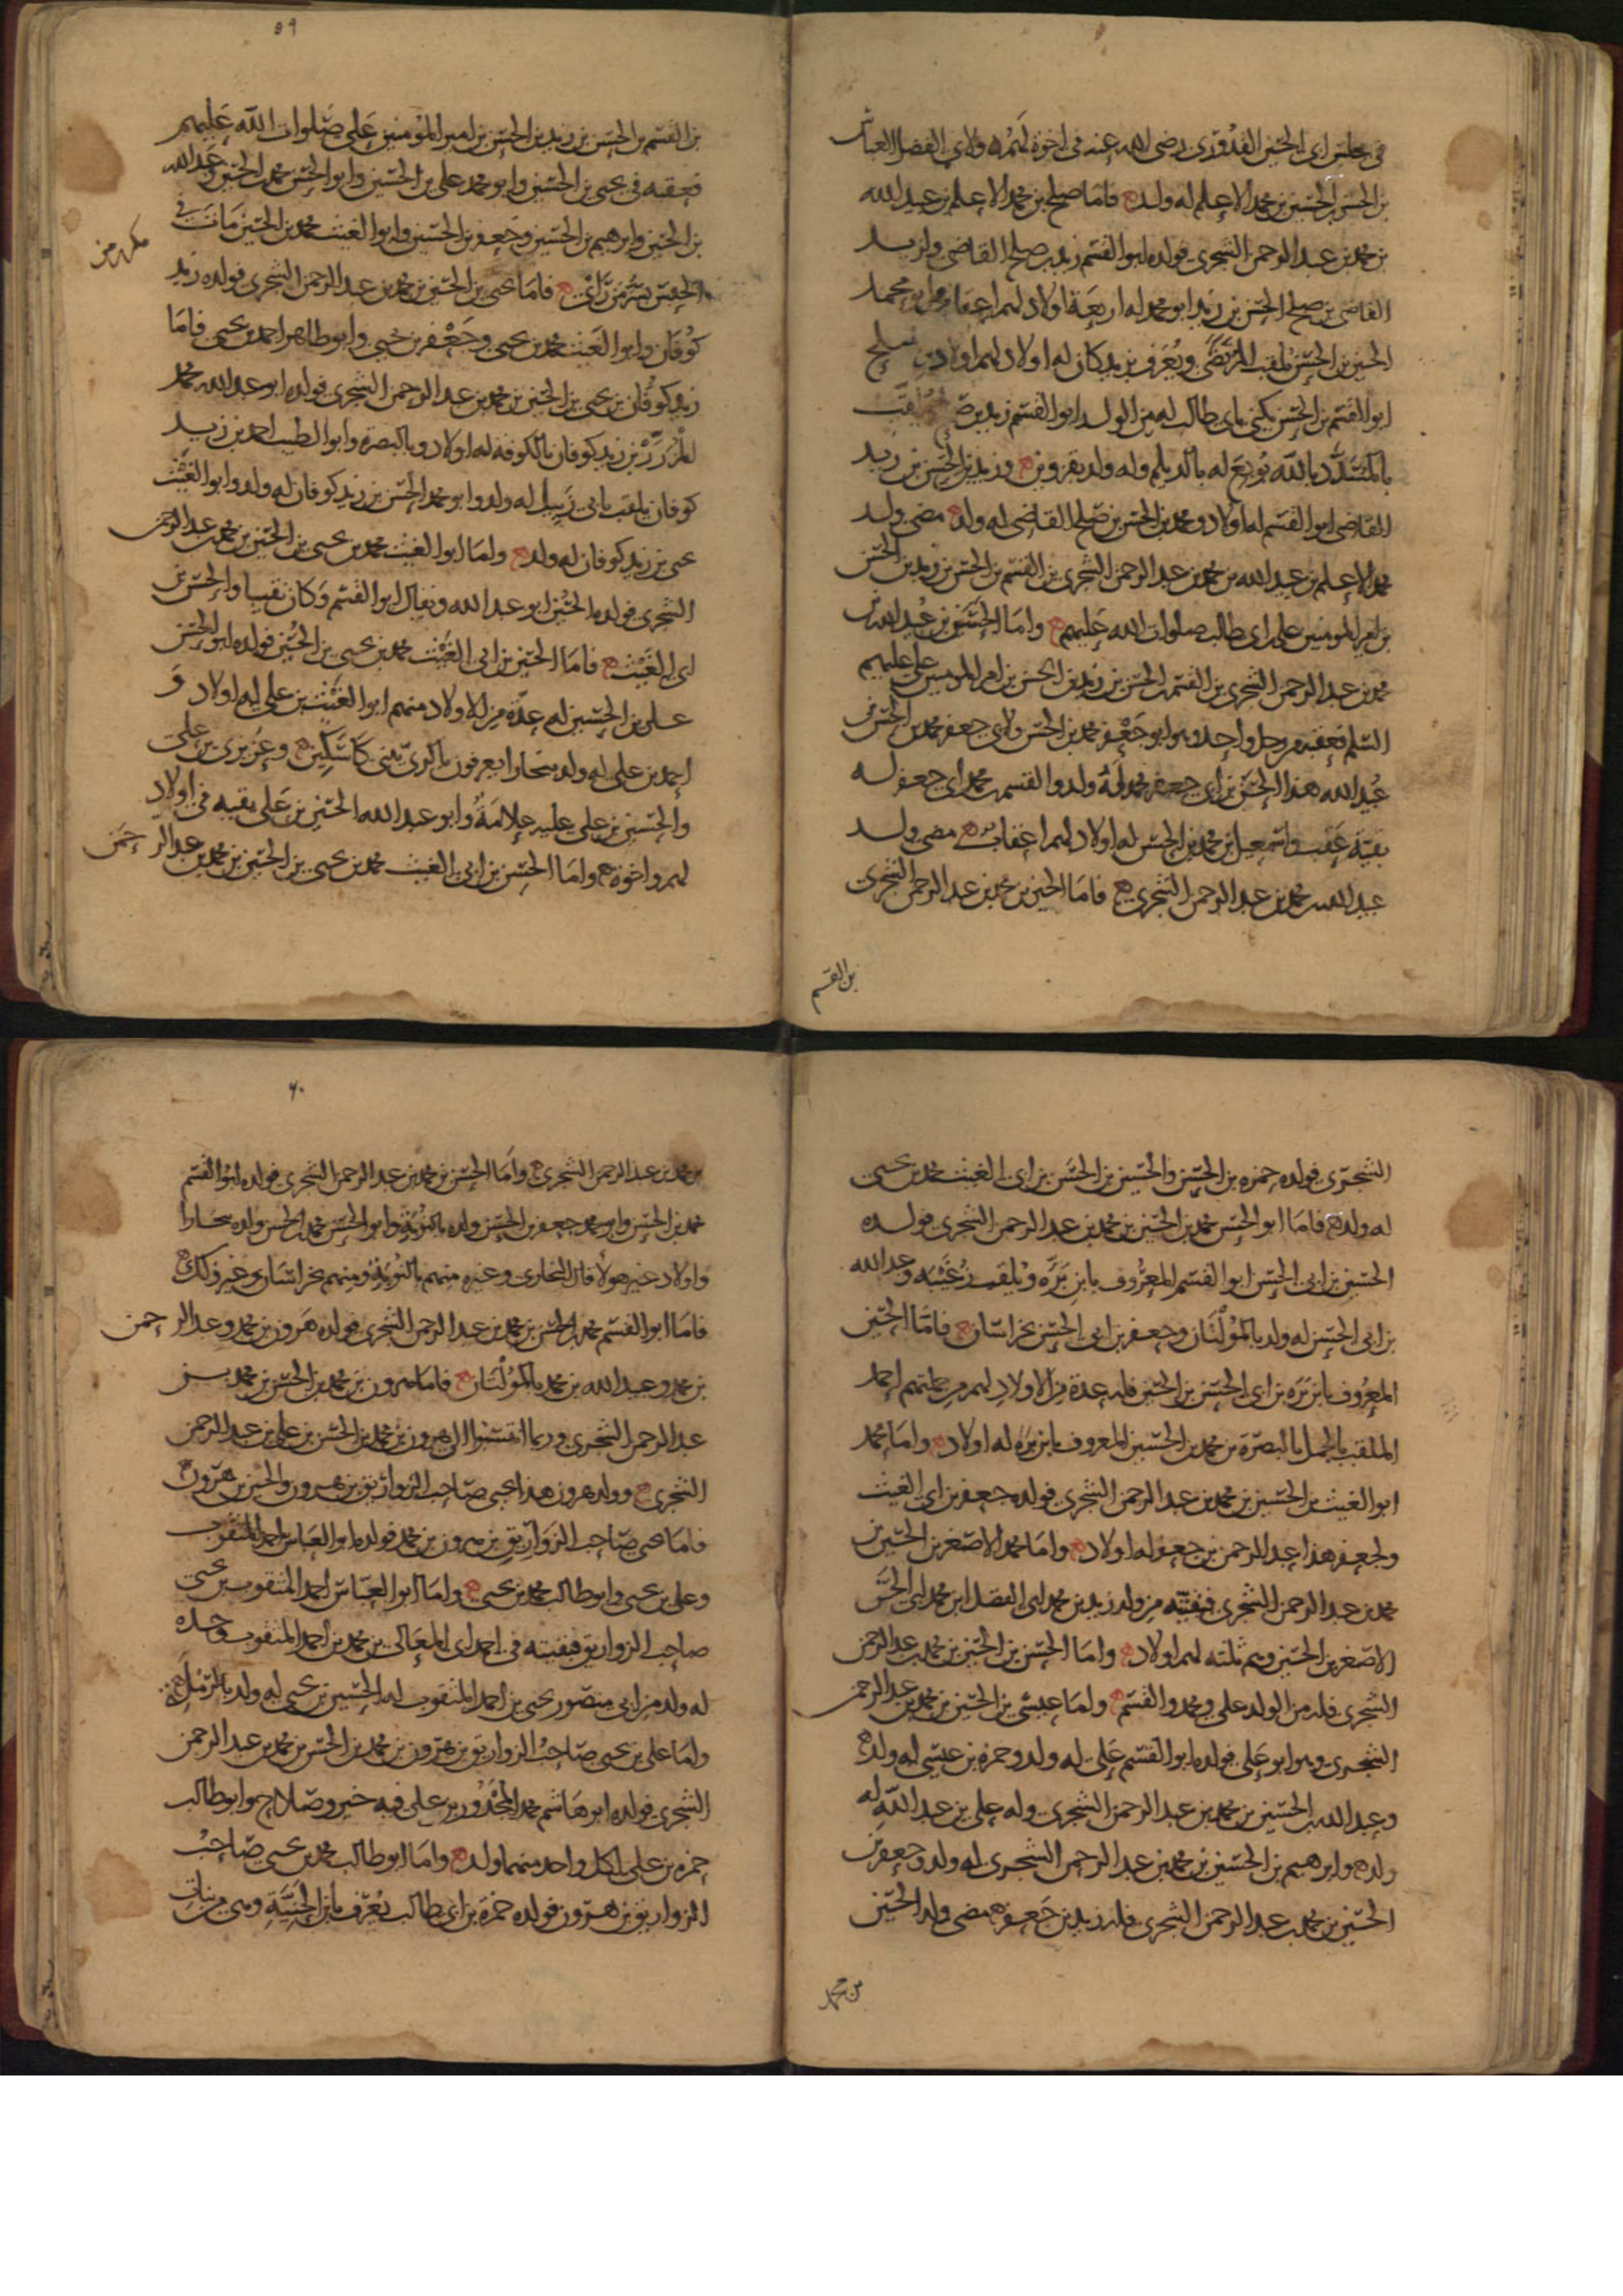 في مجلس ابي الحسن القدوري رضي الله عنه في اخوة لهم ولابي الفضل العباس
بن الحسن بن الحسين بن محمد الاعلم له ولد فاما صلح بن محمد الاعلم بن عبيد الله
بن محمد بن عبد الرحمن الشجري فولده ابو القسم زيد بن صلح القاضي ولزيد
القاضي بن صلح الحسن بن زيد ابو محمد له اربعة اولاد لهم اعقاب
الحسن بن الحسن يلقب المرتضى ويعرف بزيد كان له اولاد لهم اولاد
ابو القسم بن الحسن يكنى بابي طالب له من الولد ابو القسم زيد بن
بالمسدد بالله بويع له بالديلم وله ولد بقزوين وزيد بن الحسن بن زيد
القاضي ابو القسم له اولاد ومحمد بن الحسن بن صلح القاضي له ولد مضى ولد
محمد الاعلم بن عبيد الله بن محمد بن عبد الرحمن الشجري بن القسم بن الحسن بن زيد بن الحسن
بن امير المومنين علي بن ابي طالب صلوات الله عليهم واما الحسن بن عبيد الله بن
محمد بن عبد الرحمن الشجري بن القسم بن الحسن بن زيد بن الحسن بن امير المومنين علي عليهم
السلم فعقبه من رجل واحد وهو ابو جعفر محمد بن الحسن ولابي جعفر محمد بن الحسن بن
عبيد الله هذا الحسن بن ابي جعفر محمد له ولد والقسم بن محمد ابي جعفر له
بقية عقب واسمعيل بن محمد بن الحسن له اولاد لهم اعقاب مضى ولد
عبيد الله بن محمد بن عبد الرحمن الشجري فاما الحسين بن محمد بن عبد الرحمن الشجري
بن القسم
٥٩
بن القسم بن الحسن بن زيد بن الحسن بن امير المومنين علي صلوات الله عليهم
فعقبه في يحيى بن الحسين وابو محمد علي بن الحسين وابو الحسن محمد بن الحسين وعبد الله
بن الحسين وابرهيم بن الحسين وجعفر بن الحسين وابو الغيث محمد بن الحسين مات في
الحبس بسر من راى فاما يحيى بن الحسين بن محمد بن عبد الرحمن الشجري فولده زيد
كوفان وابو الغيث محمد بن يحيى وجعفر بن يحيى وابو طاهر احمد بن يحيى فاما
زيد كوفان بن يحيى بن الحسين بن محمد بن عبد الرحمن الشجري فولده ابو عبد الله محمد
المزرر بن زيد كوفان بالكوفة له اولاد وبالبصرة وابو الطيب احمد بن زيد
كوفان يلقب بابي زبيل له ولد وابو محمد الحسن بن زيد كوفان له ولد وابو الغيث
يحيى بن زيد كوفان له ولد واما ابو الغيث محمد بن يحيى بن الحسين بن محمد بن عبد الرحمن
الشجري فولده الحسين ابو عبد الله ويقال ابو القسم وكان نقيبا والحسن بن
ابي الغيث فاما الحسين بن ابي الغيث محمد بن يحيى بن الحسين فولده ابو الحسن
علي بن الحسين له عدة من الاولاد منهم ابو الغيث بن علي له اولاد و
احمد بن علي له ولد ببخارا يعرفون بالري ببني كاسكين وعزيزي بن علي
والحسين بن علي عليه علامة وابو عبد الله الحسين بن علي بقيه في اولاد
لهم واخوة واما الحسن بن ابي الغيث محمد بن يحيى بن الحسين بن محمد بن عبد الرحمن
الشجري فولده حمزه بن الحسن والحسين بن الحسن بن ابي الغيث محمد بن يحيى
له ولد فاما ابو الحسن محمد بن الحسين بن محمد بن عبد الرحمن الشجري فولده
الحسين بن ابي الحسن ابو القسم المعروف بابن بره ويلقب زغيبه وعبد الله
بن ابي الحسن له ولد بالمولتان وجعفر بن ابي الحسن بخراسان فاما الحسين
المعروف بابن بره بن ابي الحسن بن الحسين فله عدة من الاولاد لهم من جملتهم احمد
الملقب بالجمل بالبصرة بن محمد بن الحسين المعروف بابن بره له اولاد واما محمد
ابو الغيث بن الحسين بن محمد بن عبد الرحمن الشجري فولده جعفر بن ابي الغيث
ولجعفر هذا عبد الرحمن بن جعفر له اولاد واما محمد الاصغر بن الحسين بن
محمد بن عبد الرحمن الشجري فبقيته من ولد زيد بن محمد ابي الفضل ابن محمد ابي الحسن
الاصغر بن الحسين وهم ثلثه لهم اولاد واما الحسن بن الحسين بن محمد بن عبد الرحمن
الشجري فله من الولد علي ومحمد والقسم واما عيسى بن الحسين بن محمد بن عبد الرحمن
الشجري وهو ابو علي فولده ابو القسم علي له ولد وحمزه بن عيسى له ولد
وعبد الله بن الحسين بن محمد بن عبد الرحمن الشجري وله علي بن عبد الله له
ولد وابرهيم بن الحسين بن محمد بن عبد الرحمن الشجري له ولد وجعفر بن
الحسين بن محمد بن عبد الرحمن الشجري فله زيد بن جعفر مضى ولد الحسين
بن محمد
٦٠
بن محمد بن عبد الرحمن الشجري واما الحسن بن محمد بن عبد الرحمن الشجري فولده ابو القسم
محمد بن الحسن وابو محمد جعفر بن الحسن ولده بالنوبة وابو الحسن محمد بن الحسن ولده ببخارا
واولاد غير هولا قال البخاري وغيره منهم بالنوبة ومنهم بخراسان وغير ذلك
فاما ابو القسم محمد بن الحسن بن محمد بن عبد الرحمن الشجري فولده هرون بن محمد وعبد الرحمن
بن محمد وعبد الله بن محمد بالمولتان فاما هرون بن محمد بن الحسن بن محمد بن
عبد الرحمن الشجري وربما انتسبوا الى هرون بن محمد بن الحسن بن علي بن عبد الرحمن
الشجري وولد هرون هذا يحيى صاحب الزواريق بن هرون والحسين بن هرون
فاما يحيى صاحب الزواريق بن هرون بن محمد فولده ابو العباس احمد المثقوب
وعلي بن يحيى وابو طالب محمد بن يحيى واما ابو العباس احمد المثقوب بن يحيى
صاحب الزواريق فبقيته في احمد ابي المعالي بن محمد بن احمد المثقوب وحده
له ولد من ابي منصور يحيى بن احمد المثقوب له الحسين بن يحيى له ولد بالرملة
واما علي بن يحيى صاحب الزواريق بن هرون بن محمد بن الحسن بن محمد بن عبد الرحمن
الشجري فولده ابو هاشم محمد المجدور بن علي فيه خير وصلاح وابو طالب
حمزه بن علي لكل واحد منهما ولد واما ابو طالب محمد بن يحيى صاحب
الزواريق بن هرون فولده حمزة بن ابي طالب يعرف بابن الجنية وهي من بنات